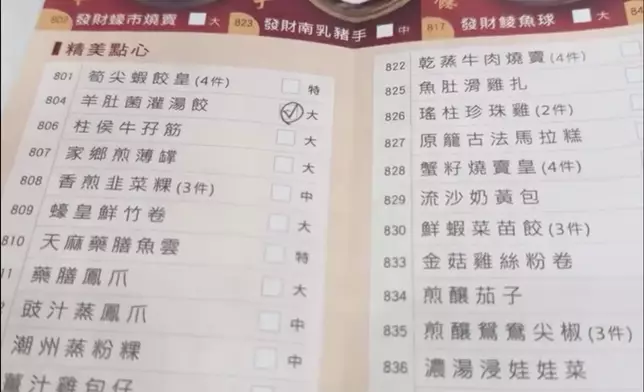 802 發財蠔市燒賣 大
823 發財南乳豬手 中
817 發財鯪魚球 大
精美點心
801 筍尖蝦餃皇(4件) 特
804 羊肚菌灌湯餃 大
806 柱侯牛孖筋 大
807 家鄉煎薄罉 大
808 香煎韭菜粿(3件) 中
809 蠔皇鮮竹卷 大
810 天麻藥膳魚雲 特
藥膳鳳爪 大
豉汁蒸鳳爪 中
潮州蒸粉粿 中
薑汁雞包仔
822 乾蒸牛肉燒賣(4件)
825 魚肚滑雞扎
826 瑤柱珍珠雞(2件)
827 原籠古法馬拉糕
828 蟹籽燒賣皇(4件)
829 流沙奶黃包
830 鮮蝦菜苗餃(3件)
833 金菇雞絲粉卷
834 煎釀茄子
835 煎釀鴛鴦尖椒(3件)
836 濃湯浸娃娃菜